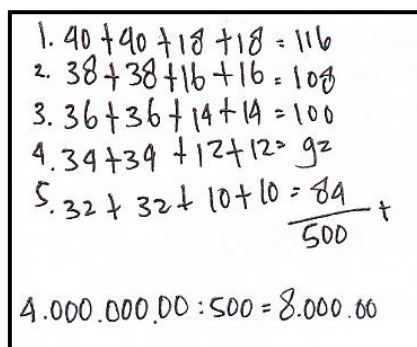 1. 40+40+18+18=116
2. 38+38+16+16=108
3. 36+36+14+14=100
4. 34+34+12+12=92
5. 32+32+10+10=84
+
500
4.000.000.00:500=8.000.00